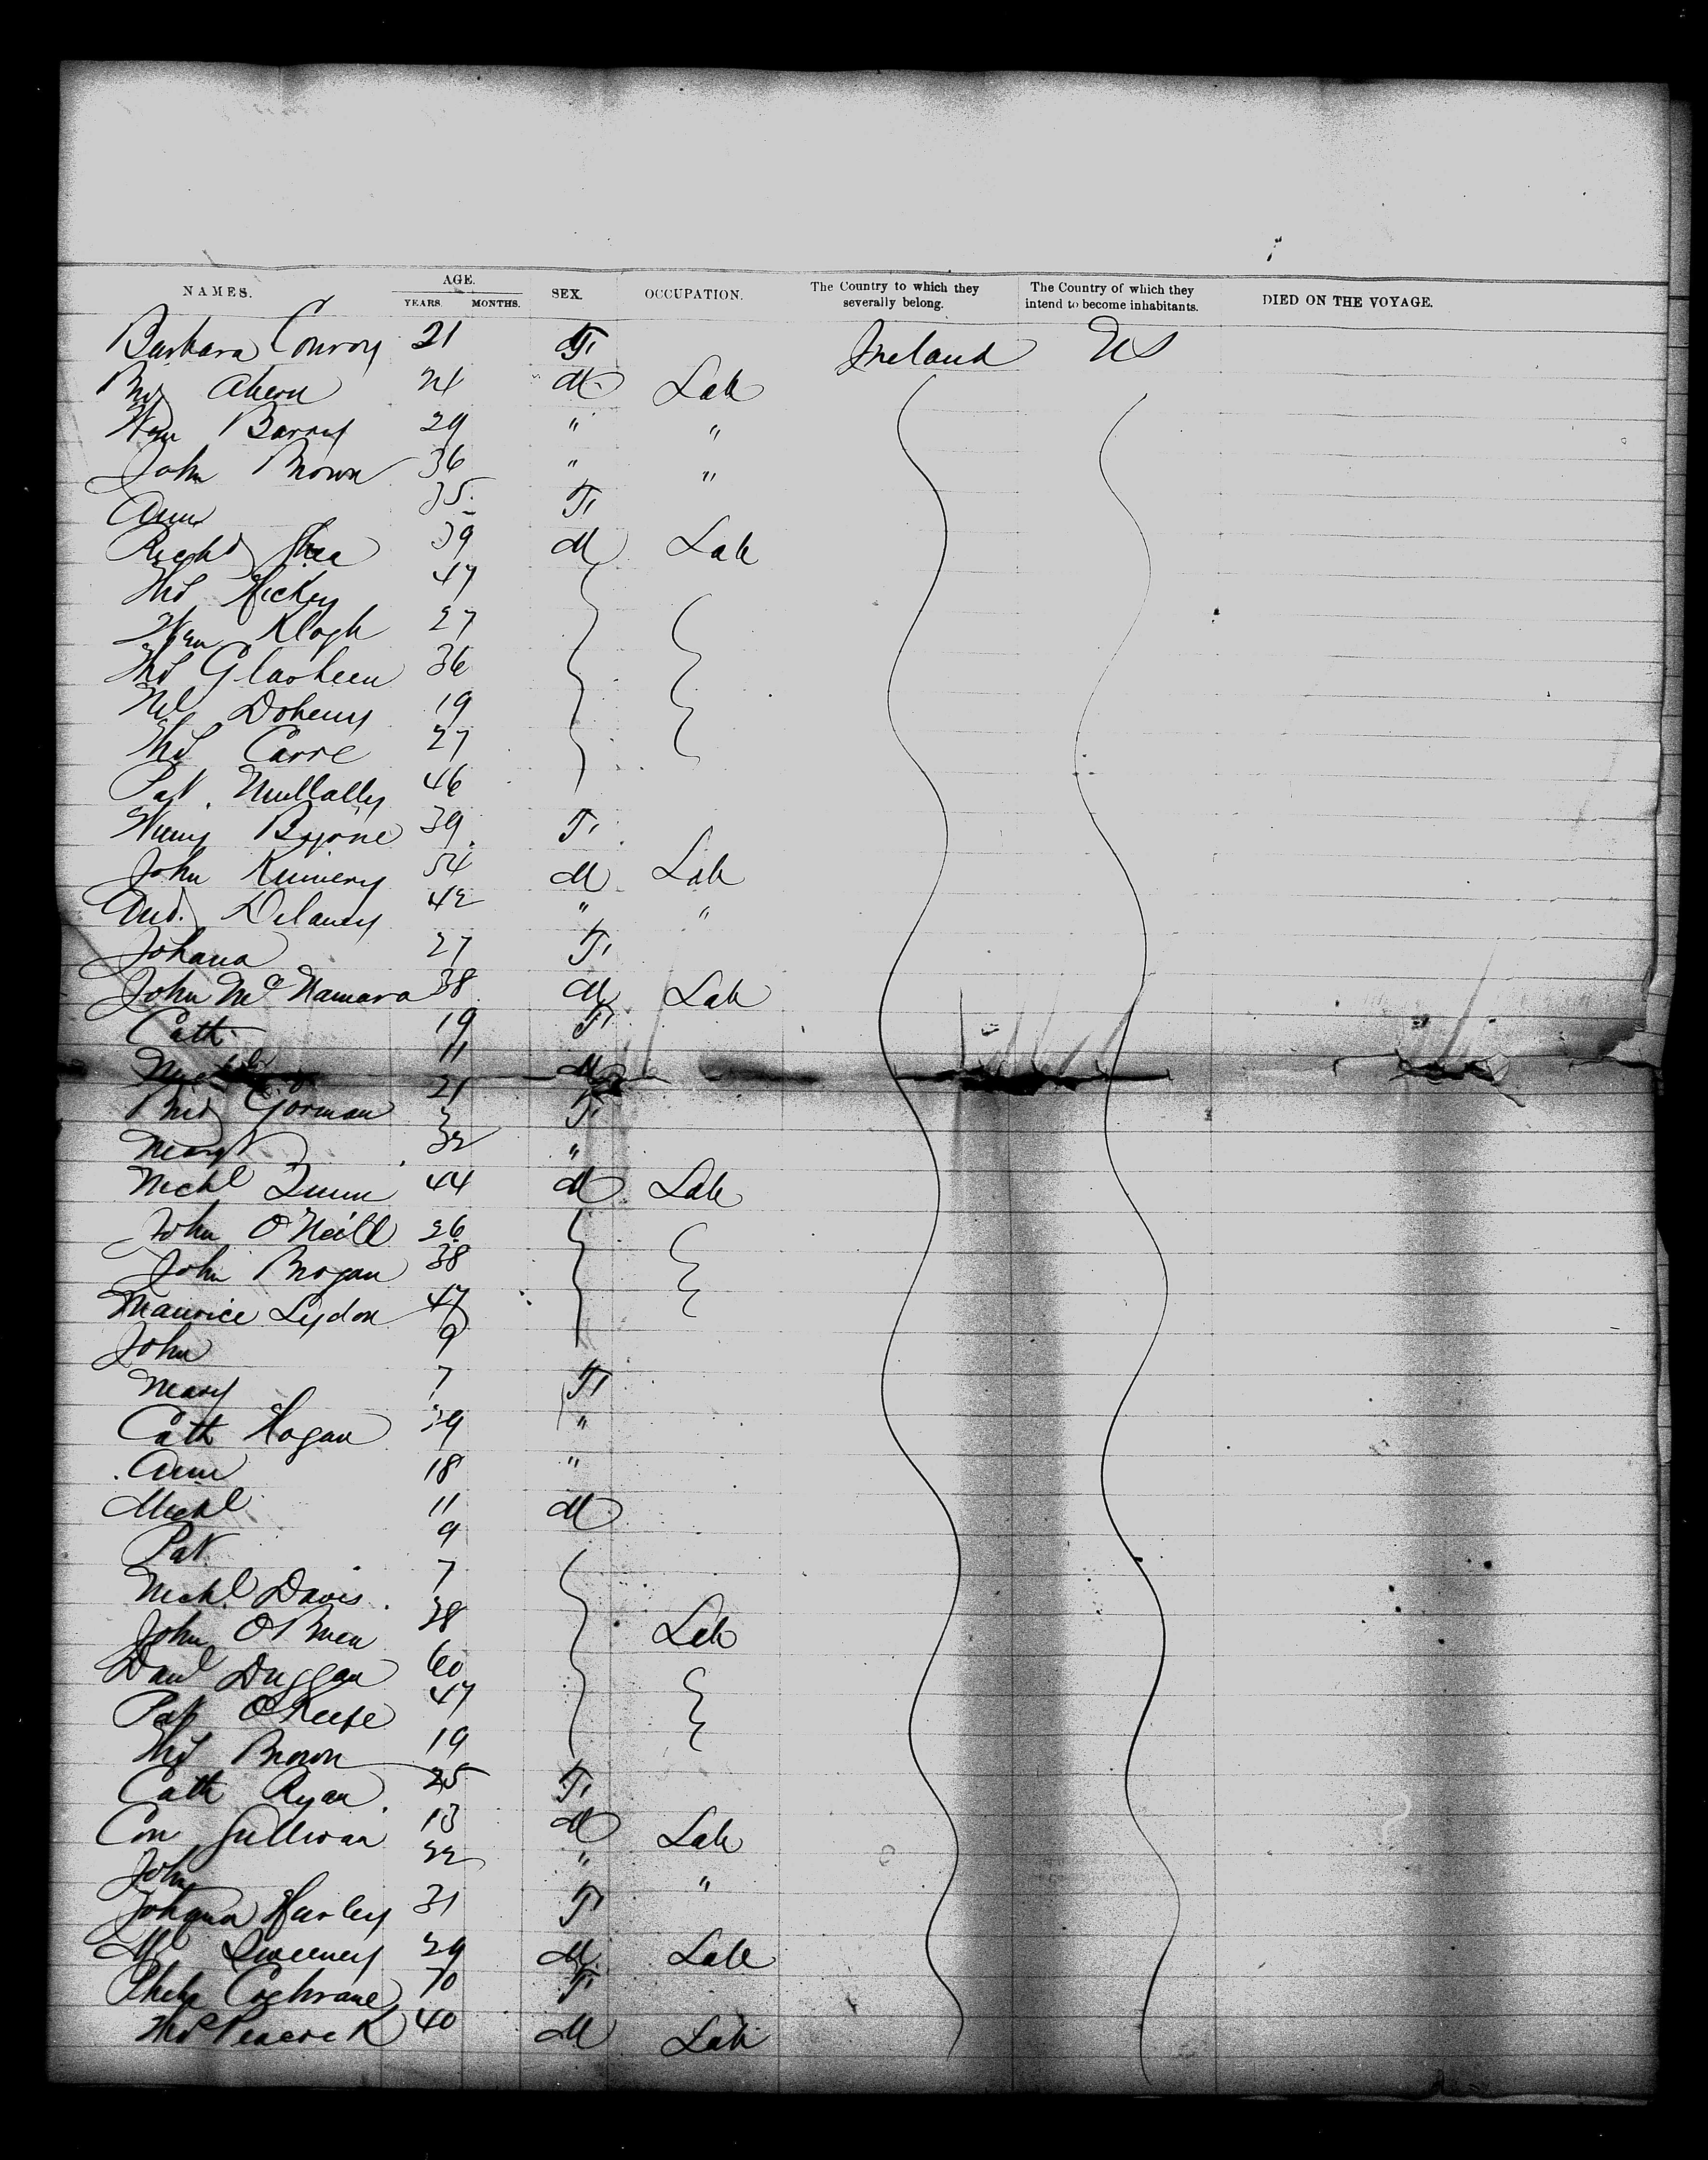 NAMES. AGE. YEARS. MONTHS. SEX. OCCUPATION. The Country to which they severally belong. The Country of which they intend to become inhabitants. DIED ON THE VOYAGE.
Barbara Conroy 21 F Ireland US
Ahern 24 M Lab
Wm Barry 29 " "
John Brown 36 " "
Ann 35 F
Richd Shea 39 M Lab
Ths Hickey 47
Wm Klogh 27
Ths Glasheen 36
Ml Doheny 19
Ths Carre 27
Pat Mullally 46
Winny Byrne 39 F
John Kinnery 54 M Lab
And. Delaney 42 " "
Johana 27 F
John McNamara 38 M Lab
Cath 19 F
11 M
Brid Gorman 21 F
Mary 32 "
Michl Quinn 44 M Lab
John O'Neill 26
John Brogan 38
Maurice Lydon 47
John 9
Mary 7 F
Cath Hogan 39 "
Ann 18 "
Michl 11 M
Pat 9
Michl Davis 7
John O'Brien 38 Lab
Danl Duggan 60
Pat O'Keefe 47
Ths Brown 19
Cath Ryan 25 F
Con Sullivan 13 M Lab
John 22 " "
Johana Harley 31 F
Sweeney 29 M Lab
Phebe Cochrane 70 F
Peacock 40 M Lab